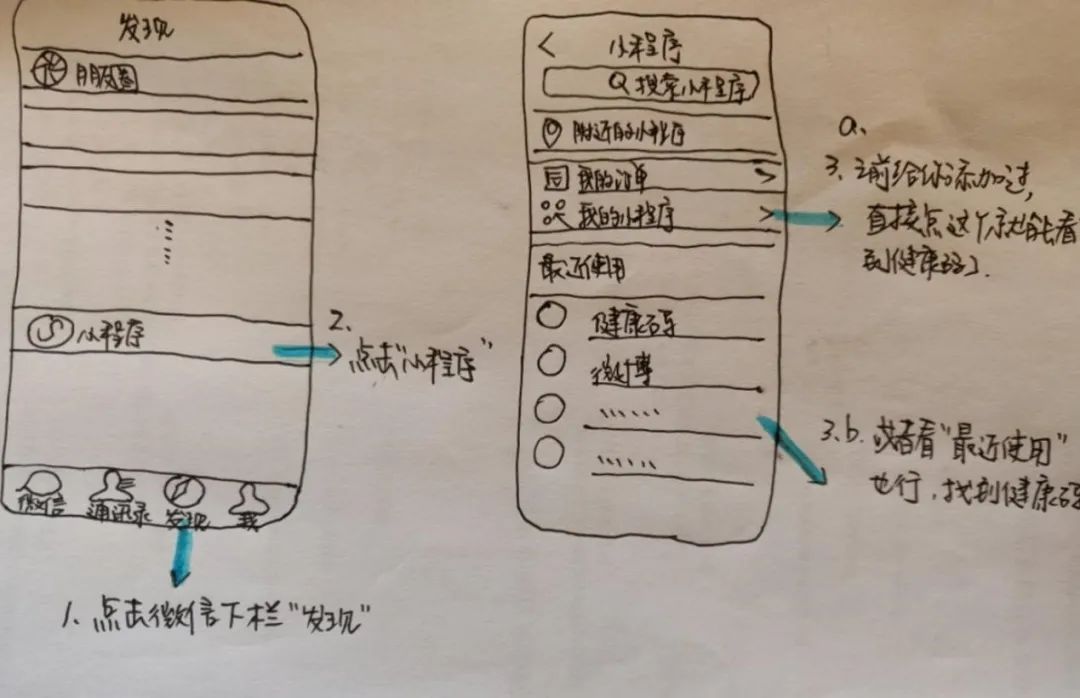 发现
朋友圈
小程序
微信 通讯录 发现 我
2.
点击“小程序”
1. 点击微信下栏“发现”
小程序
搜索小程序
附近的小程序
我的订单
我的小程序
最近使用
健康码
微博
a.
3. 之前给你添加过,
直接点这个就能看
到健康码了.
3.b. 或者看“最近使用”
也行,找到健康码